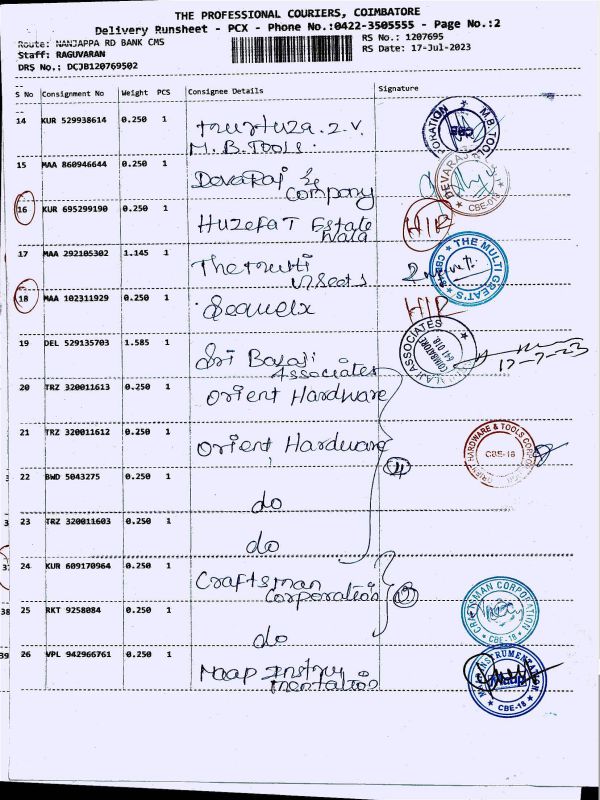 THE PROFESSIONAL COURIERS, COIMBATORE
Delivery Runsheet - PCX - Phone No.:0422-3505555 - Page No.:2
Route: NANJAPPA RD BANK CMS
RS No.: 1207695
Staff: RAGUVARAN
RS Date: 17-Jul-2023
DRS No.: DCJB120769502
S No Consignment No Weight PCS Consignee Details Signature
14 KUR 529938614 0.250 1
M.B. TOOLS.
M.B.TOOL
CBE
15 MAA 860946644 0.250 1 Devaraj &
Company
DEVARAJ
CBE-018
16 KUR 695299190 0.250 1 HUZEFA T Estate
wala
H/R
17 MAA 292105302 1.145 1
THE MULTI GREAT'S
18 MAA 102311929 0.250 1
H/R
19 DEL 529135703 1.585 1 Sri Balaji
Associates
ASSOCIATES
COIMBATORE
641 018
17-7-23
20 TRZ 320011613 0.250 1 Orient Hardware
21 TRZ 320011612 0.250 1 Orient Hardware
4
ORIENT HARDWARE & TOOLS CORPORATION
CBE-18
22 BWD 5043275 0.250 1 do
23 TRZ 320011603 0.250 1 do
24 KUR 609170964 0.250 1 Craftsman
Corporation
2
CRAFTSMAN CORPORATION
CBE-18
25 RKT 9258084 0.250 1 do
26 VPL 942966761 0.250 1 Maap Instru
mentation
MAAP INSTRUMENTATION
Maap
CBE-18
38
39